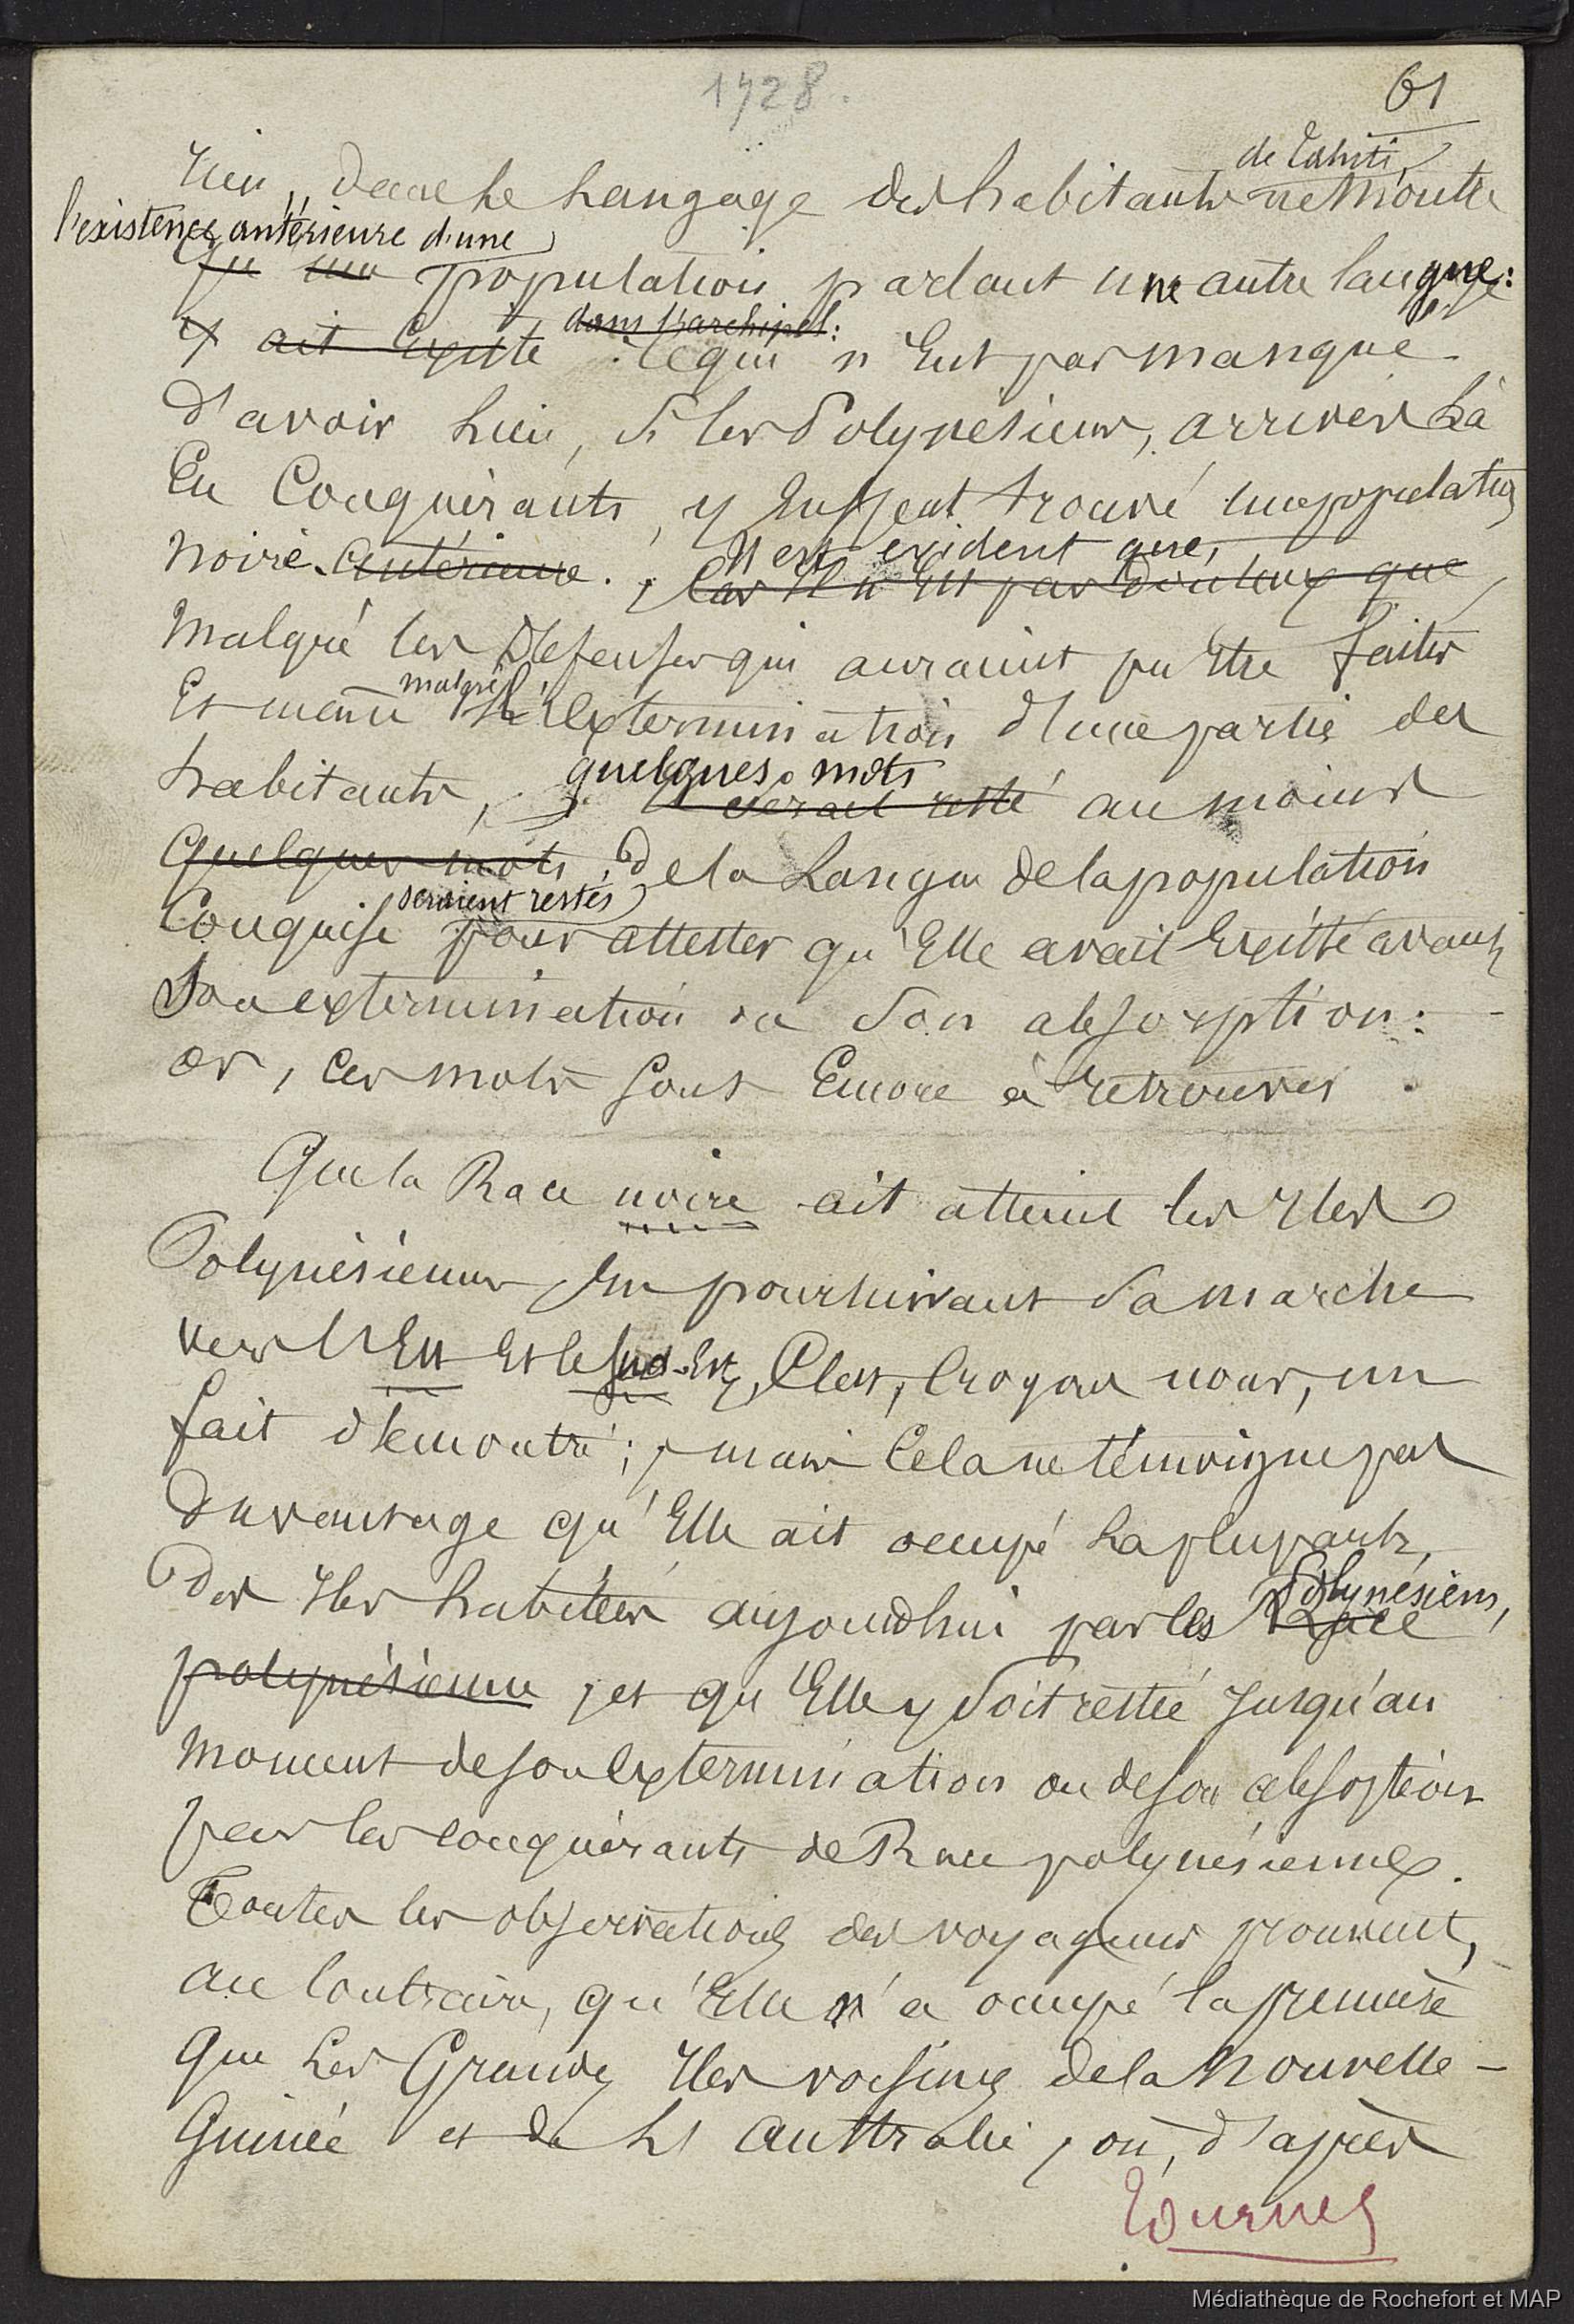 1728.
61
Rien, dans le langage des habitants de Tahiti, ne montre
l'existence antérieure d'une
qu' une population parlant une autre langue:
y ait existé dans l'archipel: ce qui n'eut pas manqué
d'avoir lieu, si les Polynésiens, arrivés là
en conquérants, y eussent trouvé une population
noire antérieure. Il est evident que,
car il n'est pas douteux que
malgré les défenses qui auraient pu être faites
et même malgré l'extermination d'une partie des
habitants, quelques mots serait resté au moins
quelques mots, de la langue de la population
conquise seraient restés pour attester qu'elle avait existé avant
son extermination ou son absorption:
or, ces mots sont encore à retrouver.
Que la Race noire ait atteint les Iles
Polynésiennes en poursuivant sa marche
vers l'Est et le Sud-Est, c'est, croyons nous, un
fait démontré; mais cela ne témoigne pas
davantage qu'elle ait occupé la plupart,
des Iles habitées aujourd'hui par les Polynésiens,
Race
polynésienne, et qu'elle y soit restée jusqu'au
moment de son extermination ou de son absorption
par les conquérants de Race polynésienne.
Toutes les observations des voyageurs prouvent,
au contraire, qu'elle n'a occupé la première
que les Grandes Iles voisines de la Nouvelle-
Guinée et de l'Australie, où, d'après
Tournez
Médiathèque de Rochefort et MAP